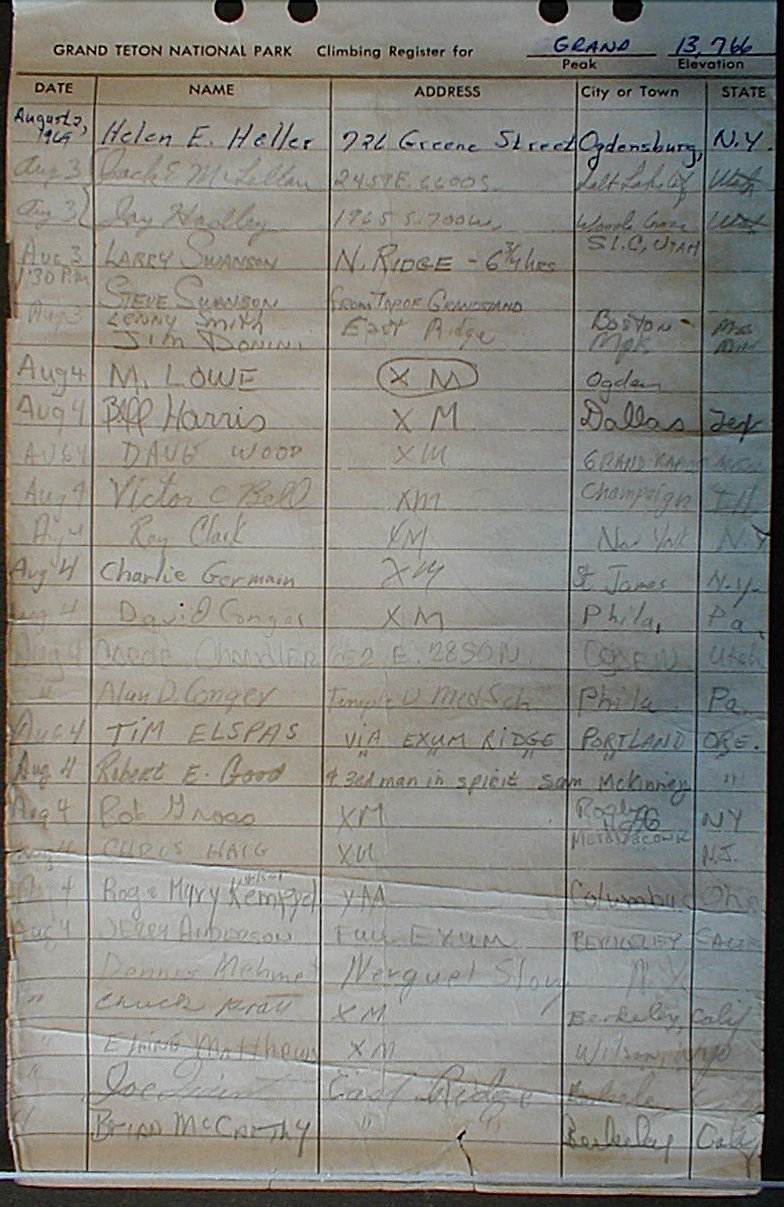 GRAND TETON NATIONAL PARK Climbing Register for GRAND 13,766
Peak Elevation
DATE NAME ADDRESS City or Town STATE
August 2, 1969 Helen E. Heller 726 Greene Street Ogdensburg, N.Y.
Aug 3 Jack E 2459 E. 6600 S. Salt Lake City Utah
Aug 3 Jay 1965 S. 700 W. Woods Cross Utah
S.L.C, UTAH
AUG 3 LARRY SWANSON N. RIDGE - 6 3/4 hrs
1:30 P.M. STEVE SWANSON FROM TOP OF GRANDSTAND
Aug 3 LENNY SMITH East Ridge BOSTON - Mass
JIM DONINI
Aug 4 M. LOWE X M Ogden
Aug 4 Bill Harris X M Dallas Tex
AUG 4 DAVE WOOD X M GRAND RAPIDS
Aug 4 Victor C Bell XM Champaign Ill
Aug 4 Ray Clark XM New York N.Y
Aug 4 Charlie Germain XM St James N.Y.
Aug 4 David Conger X M Phila, Pa,
Aug 4 CHANDLER E. 2850 N. OGDEN Utah
" Alan D. Conger Temple U Med Sch Phila. Pa.
AUG 4 TIM ELSPAS VIA EXUM RIDGE PORTLAND ORE.
Aug 4 Robert E. Good & 3rd man in spirit Sam McKinney " "
Aug 4 Bob Gross XM NY
Aug 4 CHRIS HAIG XM N.J.
4 Rog & Mary XM Columbus Ohio
Aug 4 JERRY ANDERSON FULL EXUM BERKELEY CALIF
Dennis N.Y.
" Chuck Pratt X M Berkeley, Calif
" Matthews X M Wilson,
" Joe East Ridge Berkeley
" BRIAN McCARTHY " " Berkeley Calif